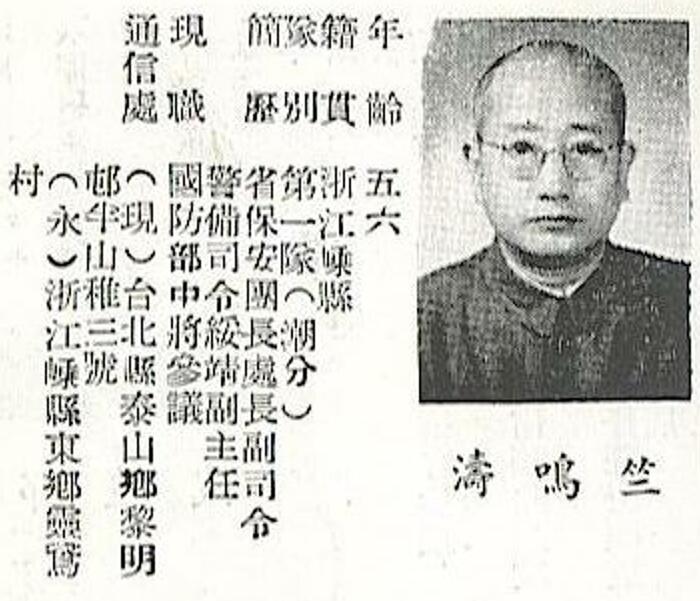 竺鳴濤
年齡 五六
籍貫 浙江嵊縣
隊別 第一隊（潮分）
簡歷 省保安團長處長副司令
警備司令綏靖副主任
現職 國防部中將參議
通信處 （現）台北縣泰山鄉黎明
邨牛山稚三號
（永）浙江嵊縣東鄉靈鵞
村